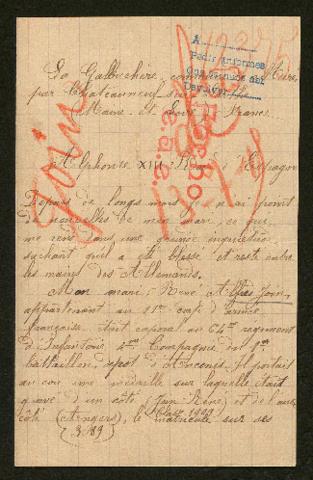 A
Pedir informes
La Galbuchère, commune de
par Chateauneuf sur
Maine et Loire France
Alphonse XIII Roi d'Espagne
Depuis de longs mois je n'ai point
de nouvelles de mon mari, ce qui
me rend dans une grande inquiétude
sachant qu'il a été blessé et resté entre
les mains des Allemands.
Mon mari René Alfred Join,
appartenant au 11e corps d'armée
française était caporal au 64me régiment
d'Infanterie 2me Compagnie du 1er
bataillon, dépôt d'Ancenis. Il portait
au cou une médaille sur laquelle était
gravé d'un côté (Join René) et de l'autre
côté (Angers), le matricule sur ses
Join